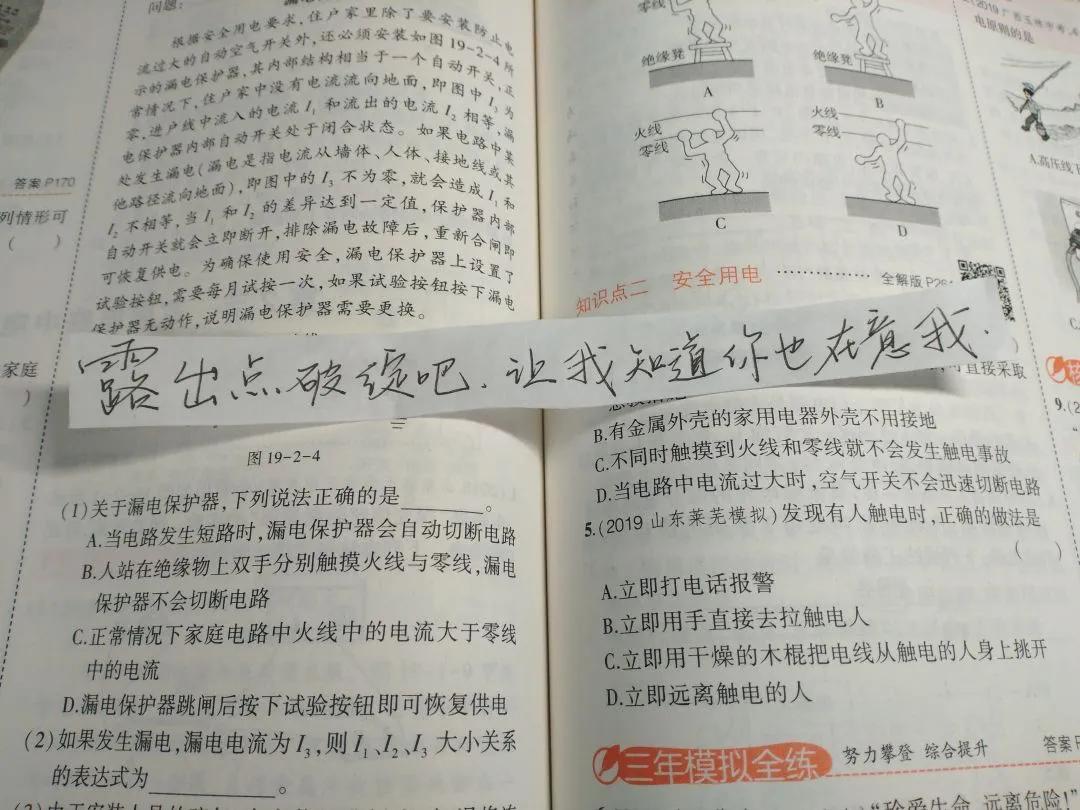 问题：
根据安全用电要求，住户家里除了要安装防止电
流过大的自动空气开关外，还必须安装如图19-2-4所
示的漏电保护器，其内部结构相当于一个自动开关，正
常情况下，住户家中没有电流流向地面，即图中I₃为
零，进户线中流入的电流I₁和流出的电流I₂相等，漏
电保护器内部自动开关处于闭合状态。如果电路中某
处发生漏电（漏电是指电流从墙体、人体、接地线或其
他路径流向地面），即图中的I₃不为零，就会造成I₁和
I₂不相等，当I₁和I₂的差异达到一定值，保护器内部
自动开关就会立即断开，排除漏电故障后，重新合闸即
可恢复供电。为确保使用安全，漏电保护器上设置了
试验按钮，需要每月试按一次，如果试验按钮按下漏电
保护器无动作，说明漏电保护器需要更换。
答案P170
列情形可
（ ）
家庭
）
露出点破绽吧.让我知道你也在意我.
图19-2-4
(1)关于漏电保护器，下列说法正确的是________。
A.当电路发生短路时，漏电保护器会自动切断电路
B.人站在绝缘物上双手分别触摸火线与零线，漏电
保护器不会切断电路
C.正常情况下家庭电路中火线中的电流大于零线
中的电流
D.漏电保护器跳闸后按下试验按钮即可恢复供电
(2)如果发生漏电，漏电电流为I₃，则I₁、I₂、I₃大小关系
的表达式为________。
零线
绝缘凳
绝缘凳
A
B
火线
零线
火线
零线
C
D
知识点二 安全用电
全解版P26
直接采取
B.有金属外壳的家用电器外壳不用接地
C.不同时触摸到火线和零线就不会发生触电事故
D.当电路中电流过大时，空气开关不会迅速切断电路
5.(2019山东莱芜模拟)发现有人触电时，正确的做法是
（ ）
A.立即打电话报警
B.立即用手直接去拉触电人
C.立即用干燥的木棍把电线从触电的人身上挑开
D.立即远离触电的人
三年模拟全练 努力攀登 综合提升
答案P
“珍爱生命，远离危险！”
(2019广西玉林中考
电原则的是
A.高压线下
9.(2